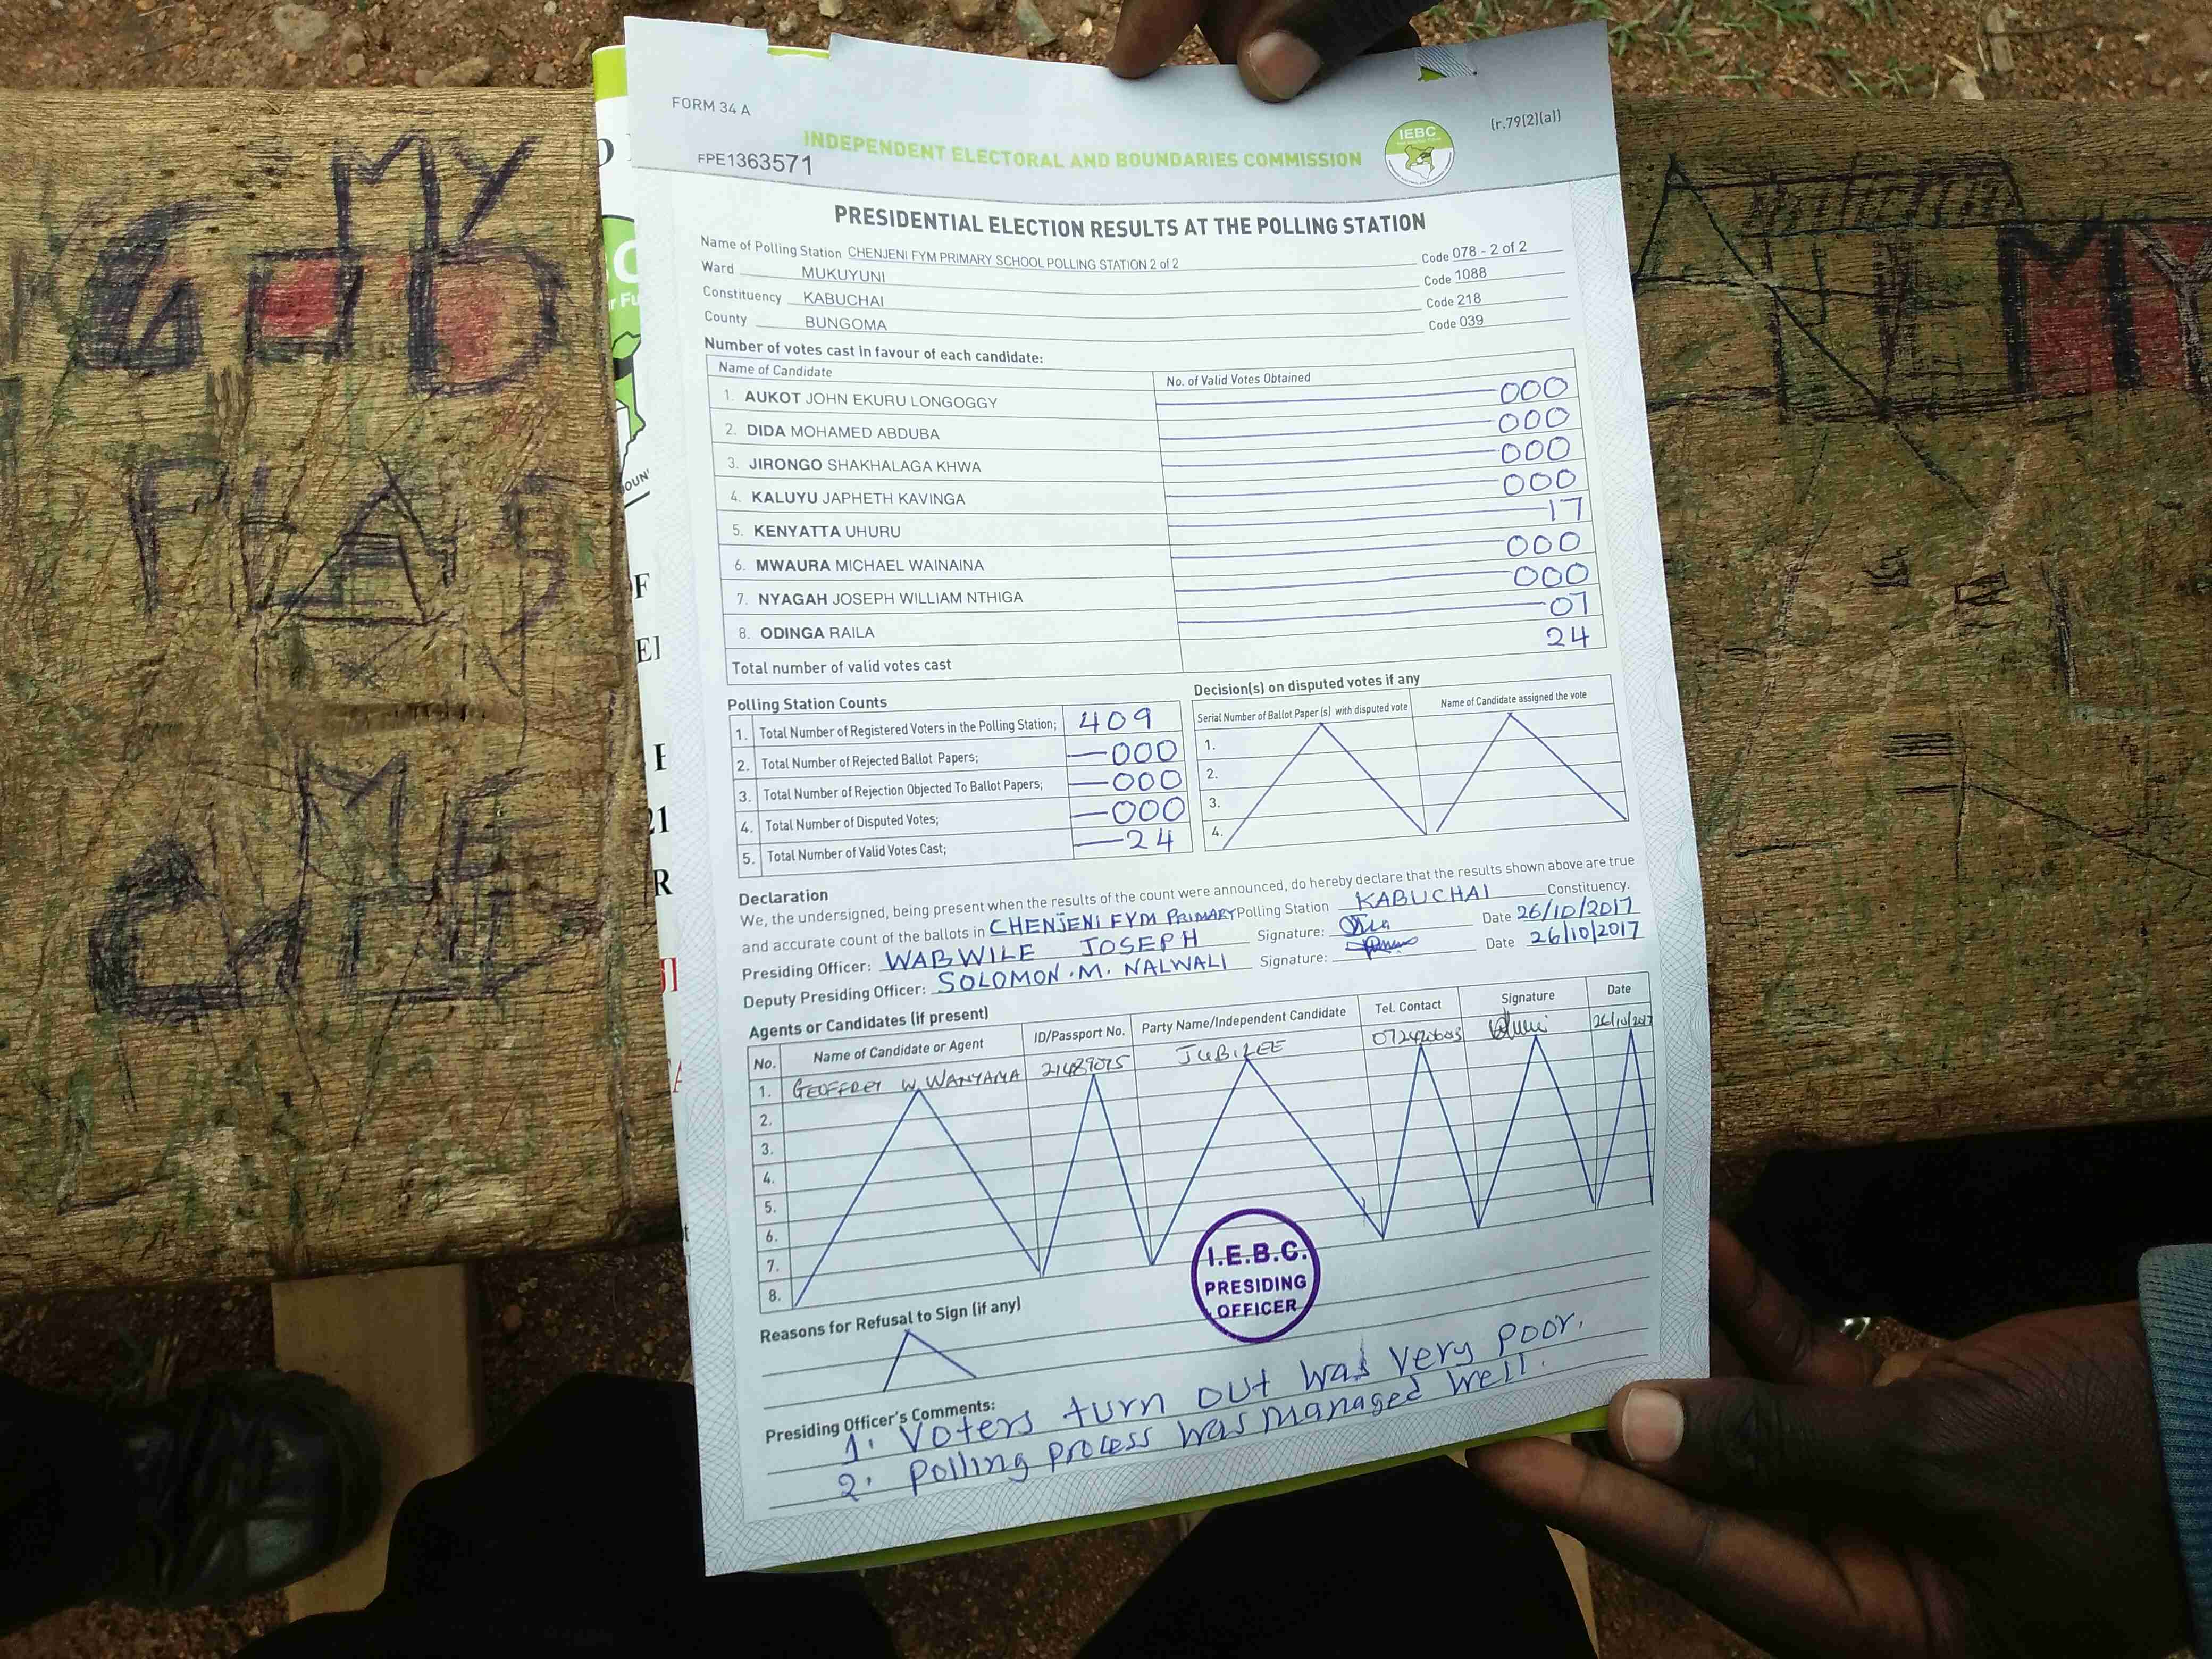 FORM 34 A
(r.79(2)(a))
INDEPENDENT ELECTORAL AND BOUNDARIES COMMISSION
IEBC
FPE1363571
PRESIDENTIAL ELECTION RESULTS AT THE POLLING STATION
Name of Polling Station CHENJENI FYM PRIMARY SCHOOL POLLING STATION 2 of 2 Code 078 - 2 of 2
Ward MUKUYUNI Code 1088
Constituency KABUCHAI Code 218
County BUNGOMA Code 039
Number of votes cast in favour of each candidate:
Name of Candidate No. of Valid Votes Obtained
1. AUKOT JOHN EKURU LONGOGGY 000
2. DIDA MOHAMED ABDUBA 000
3. JIRONGO SHAKHALAGA KHWA 000
4. KALUYU JAPHETH KAVINGA 000
5. KENYATTA UHURU 17
6. MWAURA MICHAEL WAINAINA 000
7. NYAGAH JOSEPH WILLIAM NTHIGA 000
8. ODINGA RAILA 07
Total number of valid votes cast 24
Polling Station Counts
1. Total Number of Registered Voters in the Polling Station; 409
2. Total Number of Rejected Ballot Papers; 000
3. Total Number of Rejection Objected To Ballot Papers; 000
4. Total Number of Disputed Votes; 000
5. Total Number of Valid Votes Cast; 24
Decision(s) on disputed votes if any
Serial Number of Ballot Paper (s) with disputed vote Name of Candidate assigned the vote
1.
2.
3.
4.
Declaration
We, the undersigned, being present when the results of the count were announced, do hereby declare that the results shown above are true
and accurate count of the ballots in CHENJENI FYM PRIMARY Polling Station KABUCHAI Constituency.
Presiding Officer: WABWILE JOSEPH Signature: Date 26/10/2017
Deputy Presiding Officer: SOLOMON.M. NALWALI Signature: Date 26/10/2017
Agents or Candidates (if present)
No. Name of Candidate or Agent ID/Passport No. Party Name/Independent Candidate Tel. Contact Signature Date
1. GEOFFREY W. WANYAMA JUBILEE 26/10/2017
2.
3.
4.
5.
6.
7.
8.
I.E.B.C.
PRESIDING
OFFICER
Reasons for Refusal to Sign (if any)
Presiding Officer's Comments:
1. Voters turn out was very poor.
2. Polling process was managed well.
MY
GOD
PLANS
ME
MY